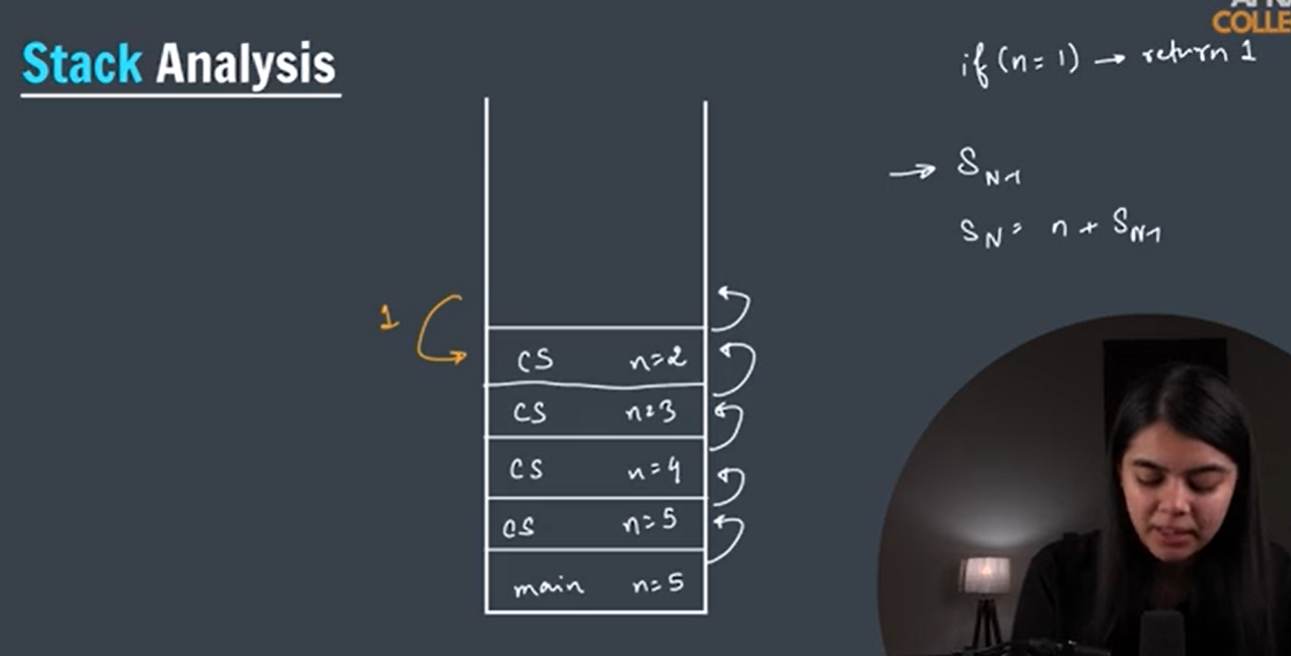 COLLE
Stack Analysis
if (n = 1) → return 1
→ S_{N-1}
S_N = n + S_{N-1}
1
CS n=2
CS n=3
CS n=4
CS n=5
main n=5